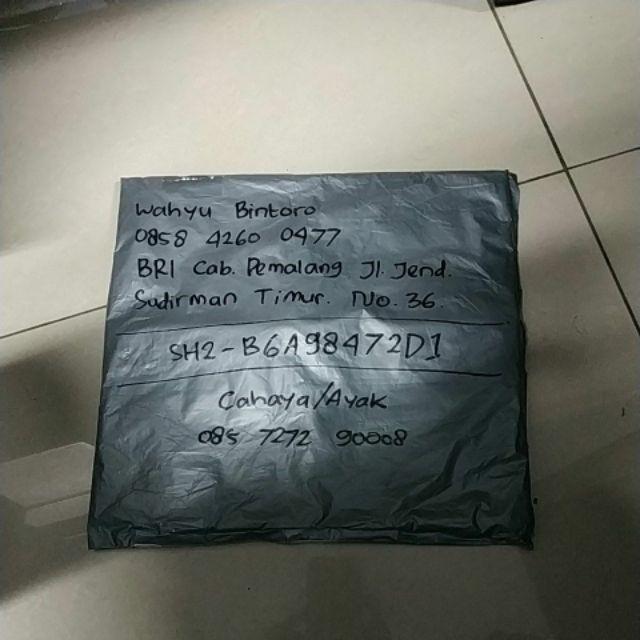 Wahyu Bintoro
0858 4260 0477
BRI Cab. Pemalang Jl. Jend.
Sudirman Timur. No. 36.
SH2-B6A98472D1
Cahaya/Ayak
085 7272 90008